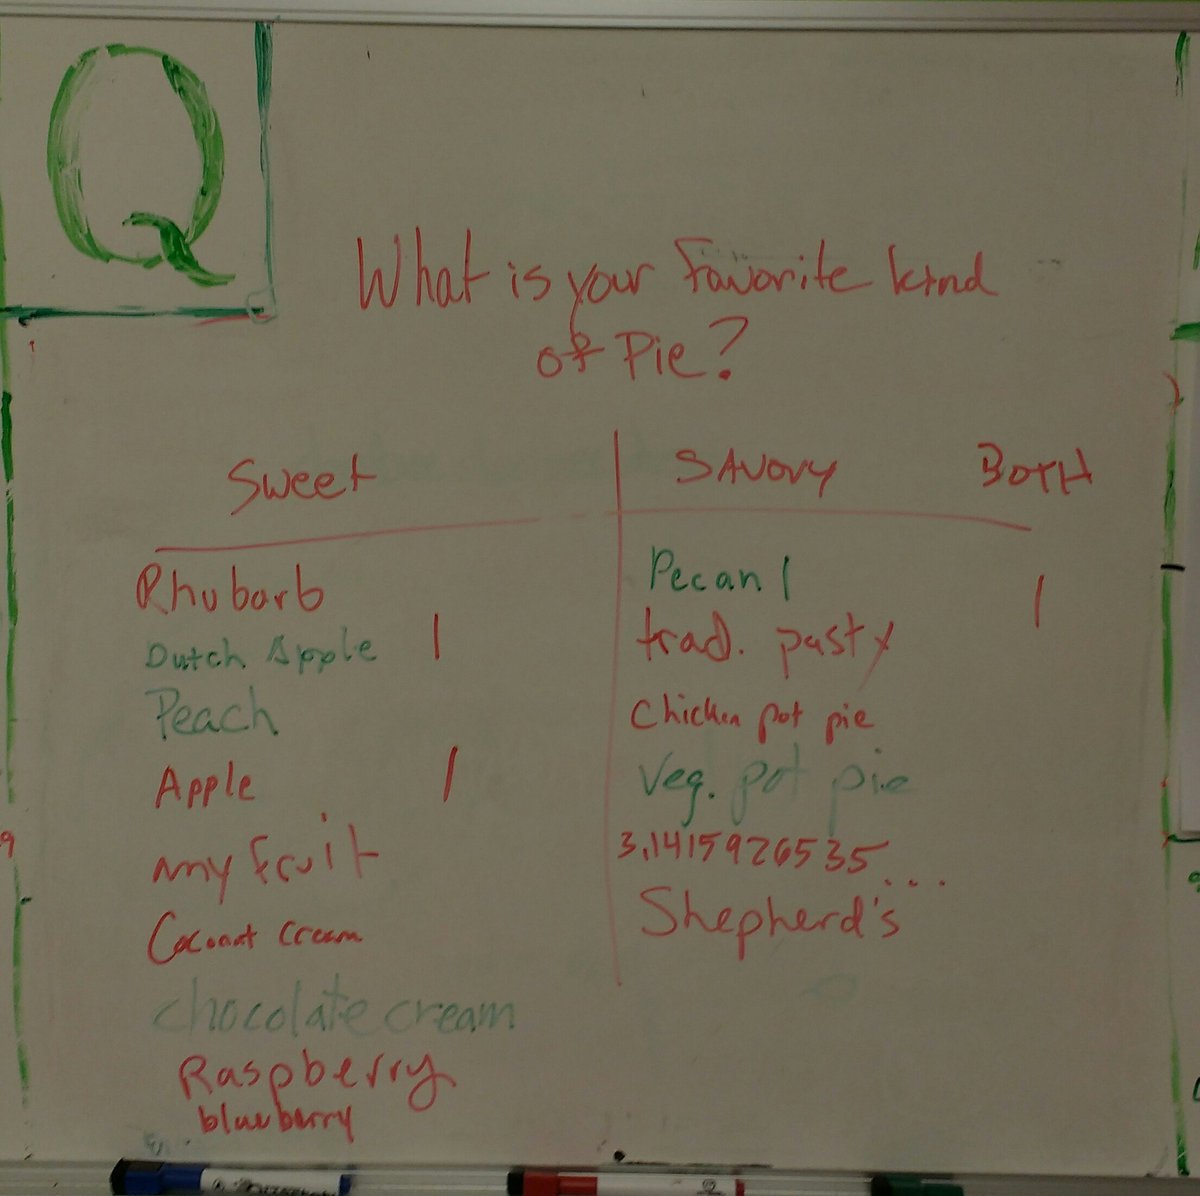 Q
What is your Favorite kind
of Pie?
Sweet
Rhubarb
Dutch Apple 1
Peach
Apple 1
any fruit
Coconut cream
chocolate cream
Raspberry
blueberry
SAVORY
Pecan 1
trad. pasty
chicken pot pie
Veg. pot pie
3.1415926535...
Shepherd's
BOTH
1
9